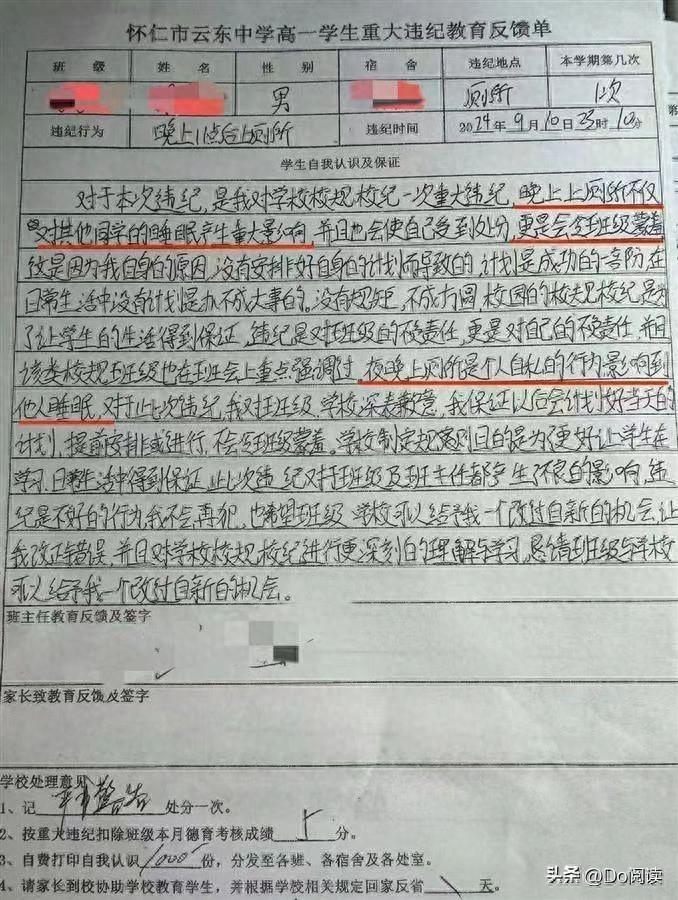 怀仁市云东中学高一学生重大违纪教育反馈单
班 级 姓 名 性 别 宿 舍 违纪地点 本学期第几次
男 厕所 1次
违纪行为 晚上11点后上厕所 违纪时间 2024年9月10日23时10分
学生自我认识及保证
对于本次违纪,是我对学校校规校纪一次重大违纪,晚上上厕所不仅
对其他同学的睡眠产生重大影响,并且也会使自己受到处分,更是会给班级蒙羞
这是因为我自身的原因,没有安排好自身的计划而导致的,计划是成功的一部份,在
日常生活中没有计划是办不成大事的。没有规矩,不成方圆,校园的校规校纪是为
了让学生的生活得到保证,违纪是对班级的不负责任,更是对自己的不负责任,并且
该类校规班级也在班会上重点强调过,夜晚上厕所是个人自私的行为,影响到
他人睡眠,对于此次违纪,我对班级、学校深表歉意,我保证以后会计划好当天的
计划,提前安排或进行,不会给班级蒙羞。学校制定规则目的是为更好让学生在
学习、日常生活中得到保证,此次违纪对班级及班主任都产生了不良的影响,违
纪是不好的行为,我不会再犯,也希望班级、学校可以给予我一个改过自新的机会,让
我改正错误,并且对学校校规、校纪进行更深刻的理解与学习,恳请班级与学校
可以给予我一个改过自新的机会。
班主任教育反馈及签字
家长致教育反馈及签字
学校处理意见
1、记 警告 处分一次。
2、按重大违纪扣除班级本月德育考核成绩 分。
3、自费打印自我认识 1000 份,分发至各班、各宿舍及各处室。
4、请家长到校协助学校教育学生,并根据学校相关规定回家反省 天。
头条 @Do阅读